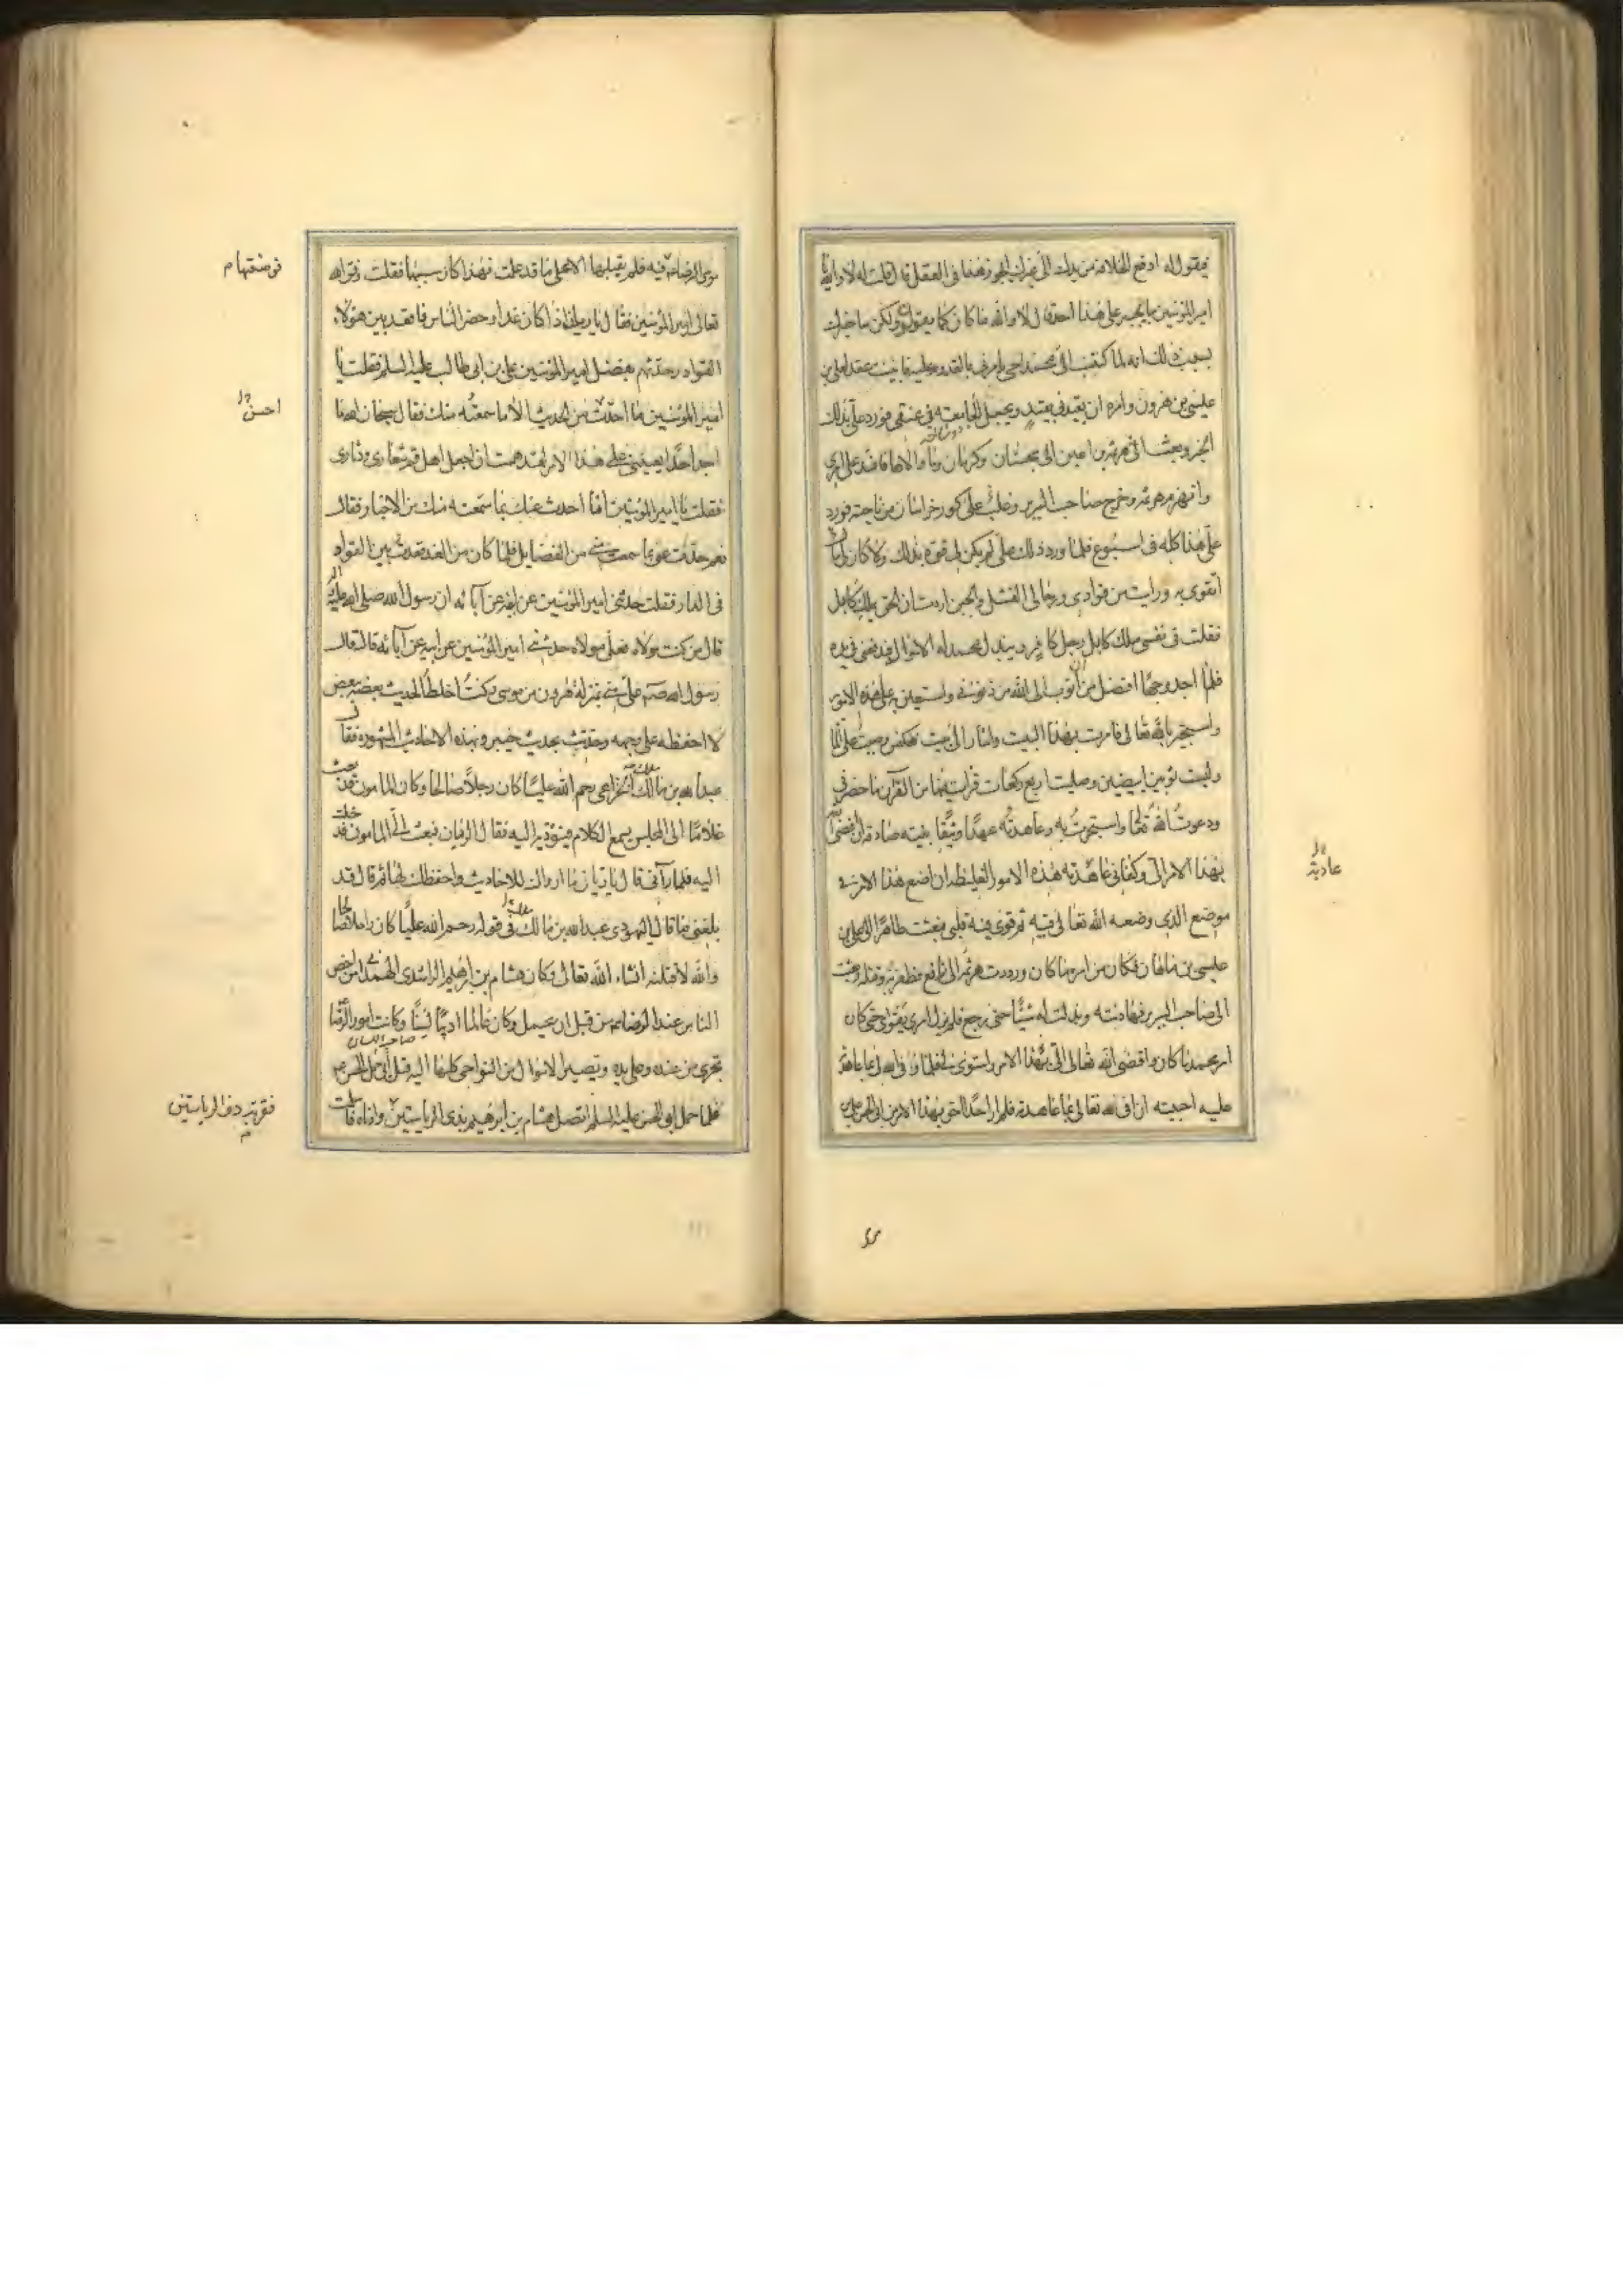 فيقول له ادفع الخلافة من يدك الى يجوز هذا فى العقل قال قلت له لا والله يا
امير المؤمنين ما يجسر على هذا احد قال لا والله ما كان كما يقولون ولكن ساخبرك
بسبب ذلك انه لما كتب الى محمد اخى يامرنى بالقدوم عليه فابيت عقد لعلى بن
عيسى بن هرون وامره ان يقيدنى بقيد ويجعل الجامعة فى عنقى فورد على بذلك
الخبر وبعثت الى هرثمة بن اعين الى سجستان وكرمان وما والاها فافسد على امرى
وانهزم هرثمة وخرج صاحب السرير وغلب على كور خراسان من ناحيته فورد
على هذا كله فى اسبوع فلما ورد ذلك على لم يكن لى قوة بذلك ولا كان لى مال
اتقوى به ورايت من قوادى ورجالى الفشل والجبن اردت ان الحق بملك كابل
فقلت فى نفسى ملك كابل رجل كافر ويبذل محمد له الاموال فيدفعنى فى يده
فلم اجد وجها افضل من ان اتوب الى الله من ذنوبى واستعين به على هذه الامور
واستجير بالله تعالى فامرت بهذا البيت واشار الى بيت فكنس وصببت على الما
ولبست ثوبين ابيضين وصليت اربع ركعات قرات فيها من القرآن ما حضرنى
ودعوت الله تعالى واستجرت به وعاهدته عهدا وثيقا بنية صادقة ان افضى الله
بهذا الامر الى وكفانى عاهدته هذه الامور الغليظة ان اضع هذا الامر فى
موضع الذى وضعه الله تعالى فيه ثم قوى فيه قلبى فبعثت طاهرا الى على بن
عيسى بن ماهان فكان من امره ما كان ورددت هرثمة الى رافع فظفر به وقتله وبعثت
الى صاحب السرير فهادنته وبذلت له شيئا حتى رجع فلم يزل امرى يتقوى حتى كان
امر محمد ما كان وافضى الله تعالى الى بهذا الامر واستوى لى فلما وفى الله لى بما عاهدته
عليه احببت ان افى لله تعالى بما عاهدته فلم ار احدا احق بهذا الامر من ابى الحسن على بن
عادية
موسى الرضا فيه فلم يقبلها الا على ما قد علمت فهذا كان سببها فقلت وفق الله
تعالى امير المؤمنين فقال يا ريان اذا كان غدا وحضر الناس فاقعد بين هؤلاء
القواد وحدثهم بفضل امير المؤمنين على بن ابى طالب عليه السلم فقلت يا
امير المؤمنين ما احدث من الحديث الا ما سمعته منك فقال سبحان الله ما
اجد احدا يعيننى على هذا الامر لقد هممت ان اجعل اهل قم شعارى ودثارى
فقلت يا امير المؤمنين انا احدث عنك بما سمعته منك من الاخبار فقال
نعم حدث عنى بما سمعته منى من الفضايل فلما كان من الغد قعدت بين القواد
فى الدار فقلت حدثنى امير المؤمنين عن ابيه عن آبائه ان رسول الله صلى الله عليه واله
قال من كنت مولاه فعلى مولاه حدثنى امير المؤمنين عن ابيه عن آبائه قال قال
رسول الله صلعم على منى بمنزلة هرون من موسى وكنت اخلط الحديث بعضه ببعض
لا احفظه على وجهه وحدثت بحديث خيبر وبهذه الاخبار المشهورة فقال
عبد الله بن مالك الخزاعى رحم الله عليا كان رجلا صالحا وكان المامون قد بعث
غلاما الى المجلس يسمع الكلام فيؤديه اليه فقال الريان فبعث الى المامون فدخلت
اليه فلما رآنى قال يا ريان ما ارواك للاحاديث واحفظك لها ثم قال قد
بلغنى ما قال اليهودى عبد الله بن مالك فى قوله رحم الله عليا كان رجلا صالحا
والله لاقتلنه انشاء الله تعالى وكان هشام بن ابرهيم الراشدى الهمدانى من اخص
الناس عند الرضا من قبل ان يحمل وكان عالما اديبا لسنا وكانت امور الرضا
تجرى من عنده وعلى يده وتصير الاموال من النواحى كلها اليه قبل حمل ابى الحسن
فلما حمل ابو الحسن عليه السلم اتصل هشام بن ابرهيم بذى الرياستين
احسن
فقربه ذو الرياستين